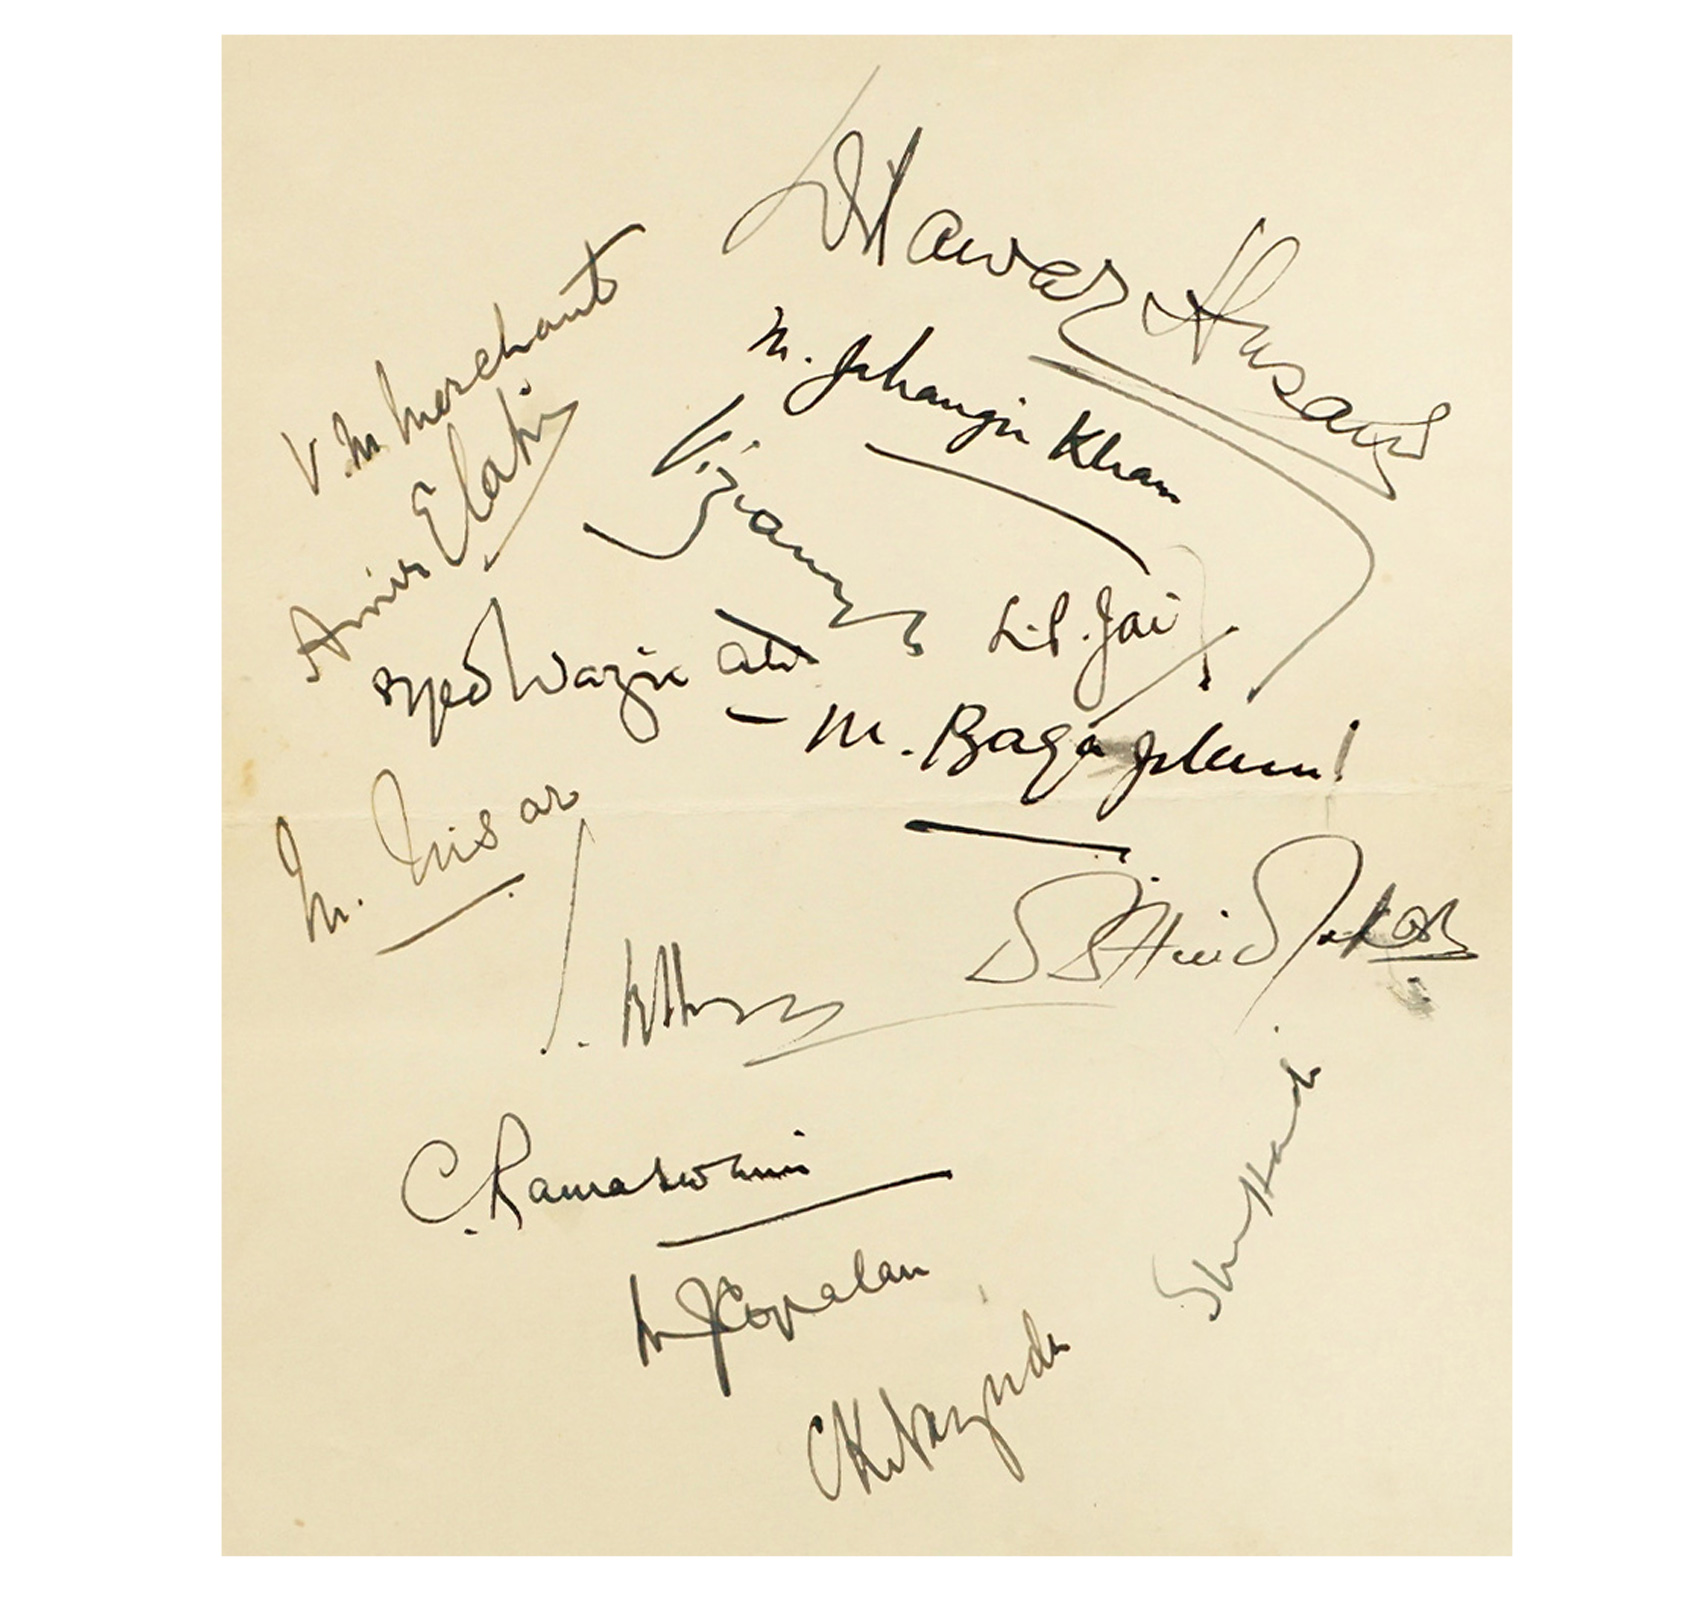 Dilawar Husain
V. M. Merchant
M. Jahangir Khan
Amir Elahi
Vizianagram
L. P. Jai
Syed Wazir Ali
M. Baqa Jilani
M. Nisar
C. Ramaswami
M J Gopalan
C K Nayudu